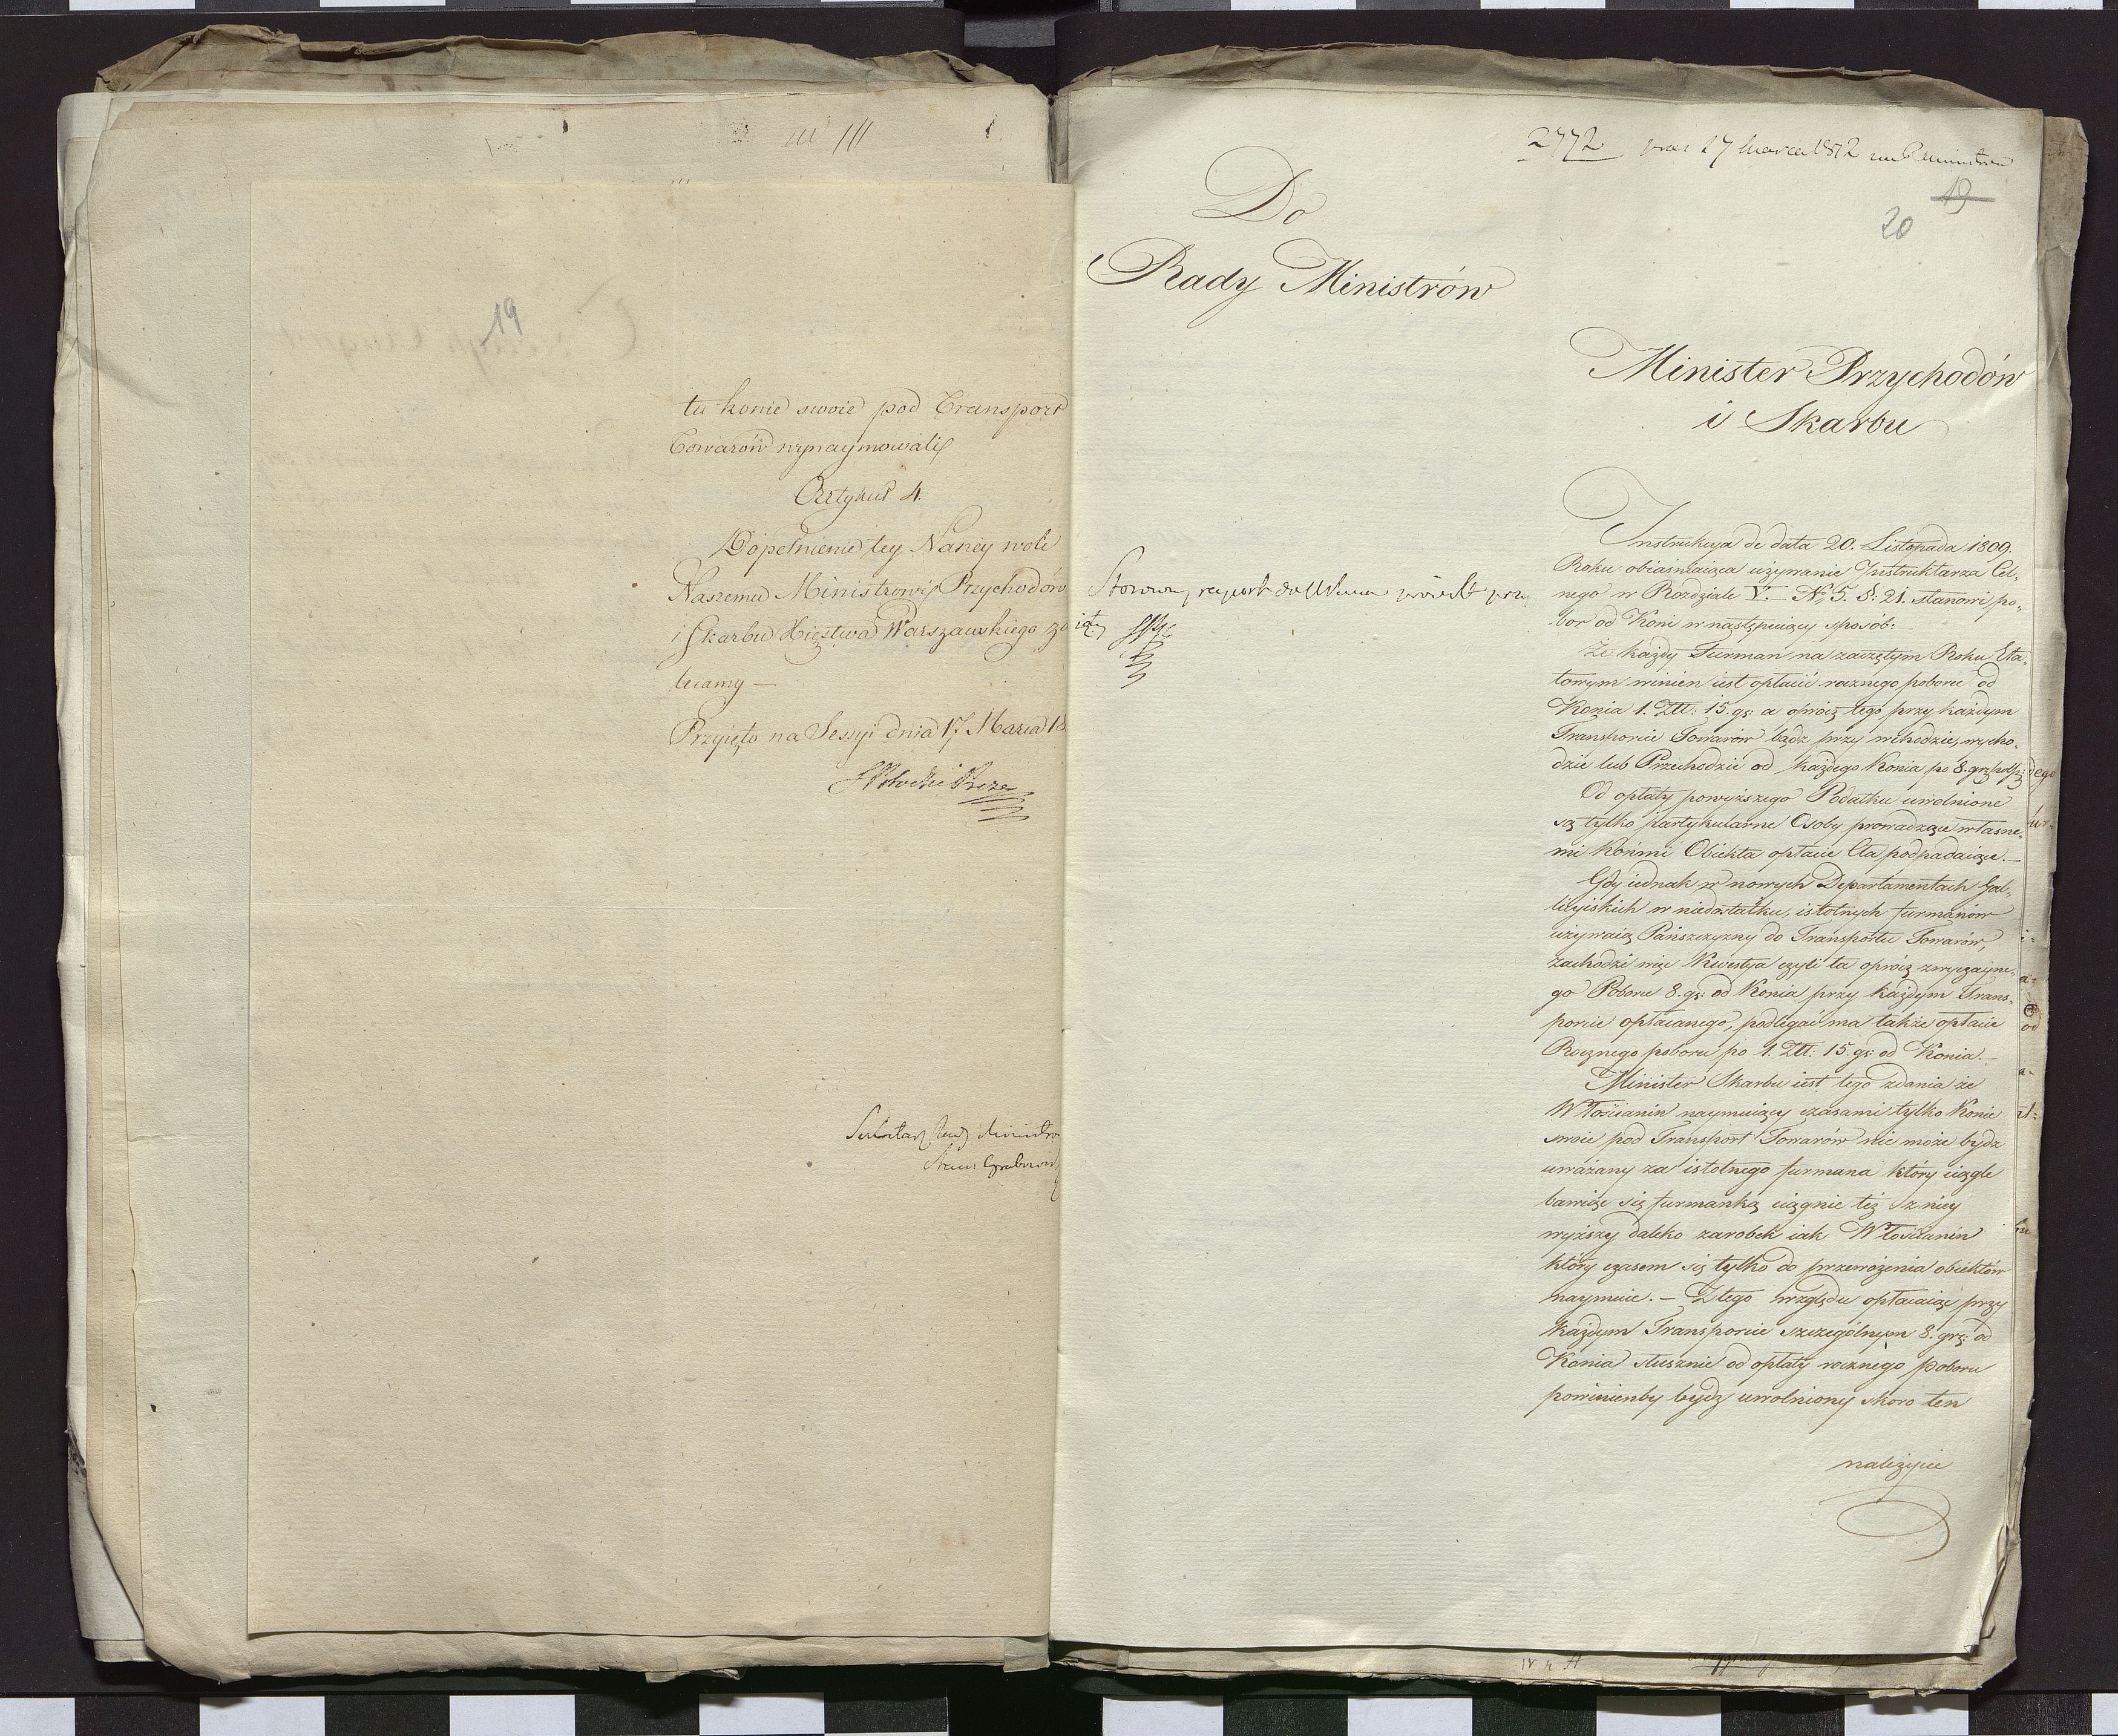 19
tu konie swoie pod Transport
Towarów wynaymowali
Artykuł 4.
Dopełnienie tey Naszey woli
Naszemu Ministrowi Przychodów
i Skarbu Xięstwa Warszawskiego za
lecamy —
Przyięto na Sessyi dnia 17 Marca 18
Sekretarz Rady Ministrów
2772 17 Marca 1812
19
20
Do
Rady Ministrów
Minister Przychodów
i Skarbu
Instrukcya de data 20. Listopada 1809.
Roku obiasniaiąca używanie Instruktarza Cel-
nego w Rozdziale V. No 5. §: 21. stanowi po-
bor od Koni w następuiący sposób: —
Że każdy Furman na zaczętym Roku Eta-
towym winien iest opłacić rocznego poboru od
Konia 1. Zll: 15. gs: a oprócz tego przy każdym
Transporcie Towarów bądz przy wchodzie, wycho-
dzie lub Przechodzie od każdego Konia po 8. grz:
Od opłaty powyższego Podatku uwolnione
są tylko partykularne Osoby prowadzące własne-
mi Końmi Obiekta opłacie Cła podpadaiące. —
Gdy iednak w nowych Departamentach Gal-
licyiskich w niedostatku, istotnych furmanów
używaią Pańszczyzny do Transportu Towarów,
zachodzi więc Kwestya czyli ta oprócz zwyczayne-
go Poboru 8. gs: od Konia przy każdym Trans-
porcie opłacanego, podlegać ma także opłacie
Rocznego poboru po 1. Zll: 15. gs: od Konia. —
Minister Skarbu iest tego zdania że
Włościanin naymuiący czasami tylko Konie
swoie pod Transport Towarów nie może bydz
uważany za istotnego furmana który ciągle
bawiąc się furmanką ciągnie też z niey
wyższy daleko zarobek iak Włościanin
który czasem się tylko do przewożenia obiektów
naymuie. — Z tego względu opłacaiąc przy
każdym Transporcie szczególnym 8. grs: od
Konia słusznie od opłaty rocznego poboru
powinienby bydz uwolniony skoro ten
należycie